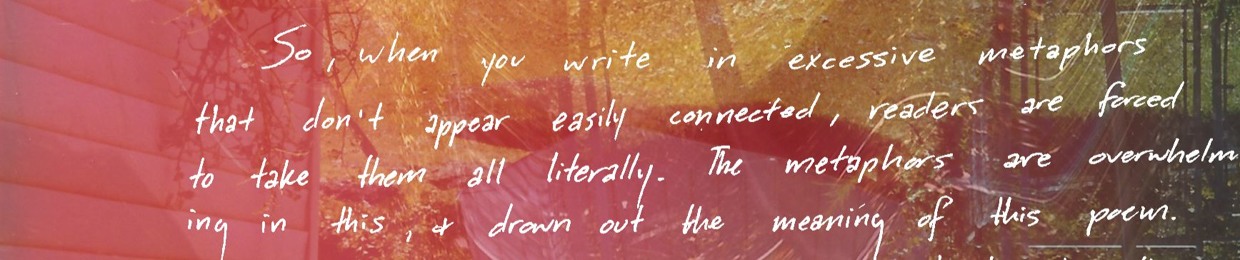 So, when you write in excessive metaphors
that don't appear easily connected, readers are forced
to take them all literally. The metaphors are overwhelm
ing in this, & drown out the meaning of this poem.